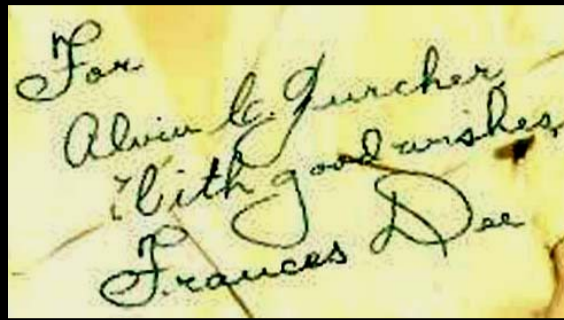 For
Alvin C. Zurcher
With good wishes,
Frances Dee